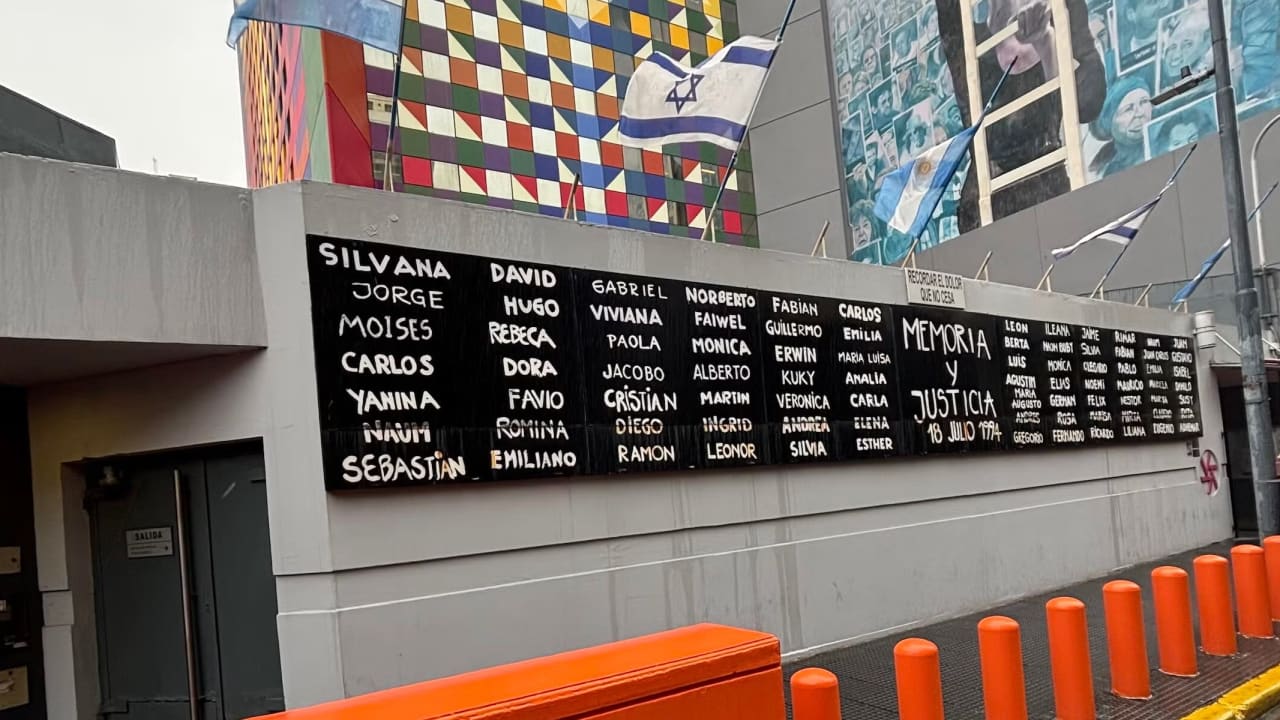 SILVANA
JORGE
MOISES
CARLOS
YANINA
NAUM
SEBASTIAN
DAVID
HUGO
REBECA
DORA
FAVIO
ROMINA
EMILIANO
GABRIEL
VIVIANA
PAOLA
JACOBO
CRISTIAN
DIEGO
RAMON
NORBERTO
FAIWEL
MONICA
ALBERTO
MARTIN
INGRID
LEONOR
FABIAN
GUILLERMO
ERWIN
KUKY
VERONICA
ANDREA
SILVIA
CARLOS
EMILIA
MARIA LUISA
ANALIA
CARLA
ELENA
ESTHER
RECORDAR EL DOLOR
QUE NO CESA
MEMORIA
Y
JUSTICIA
18 JULIO 1994
LEON
BERTA
LUIS
AGUSTIN
MARIA
AUGUSTO
ANDRES
GREGORIO
ILEANA
MONICA
ELIAS
GERMAN
ROSA
FERNANDO
JAIME
SILVIA
NOEMI
FELIX
RICARDO
RIMAR
FABIAN
PABLO
MAURICIO
NESTOR
LILIANA
NAUM
JUAN CARLOS
EMILIA
EUGENIO
JUAN
GUSTAVO
ISABEL
DANILO
SUSY
ADHEMAR
SALIDA